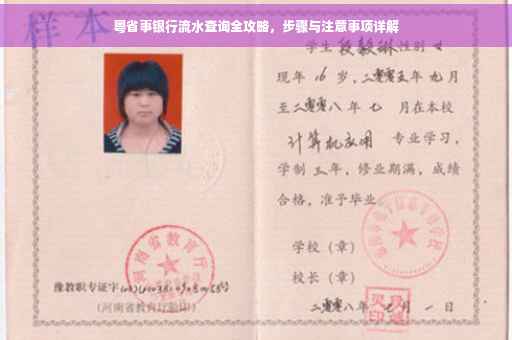 粤省事银行流水查询全攻略，步骤与注意事项详解
样本
学生 段毅琳 性别 女
现年 16 岁，二零零五年 九月
至二零零八年 七 月在本校
计算机应用 专业学习，
学制 三年，修业期满，成绩
合格，准予毕业
学校（章）
校长（章）
二零零八年 月 一 日
河南省教育厅
豫教职专证字
（河南省教育厅验印）